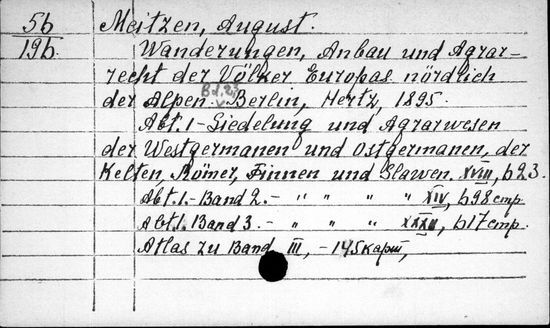 5b Meitzen, August.
19b. Wanderungen, Anbau und Agrar-
recht der Völker Europas nördlich
der Alpen. Bd. 23 Berlin, Hertz, 1895.
Abt. 1 - Siedelung und Agrarwesen
der Westgermanen und Ostgermanen, der
Kelten, Römer, Finnen und Slawen. XVIII, 623.
Abt. 1. - Band 2. - " " " " XIV, 698 стр.
Abt. 1. Band 3. - " " " " XXXII, 617 стр.
Atlas zu Band III, - 145 карт,